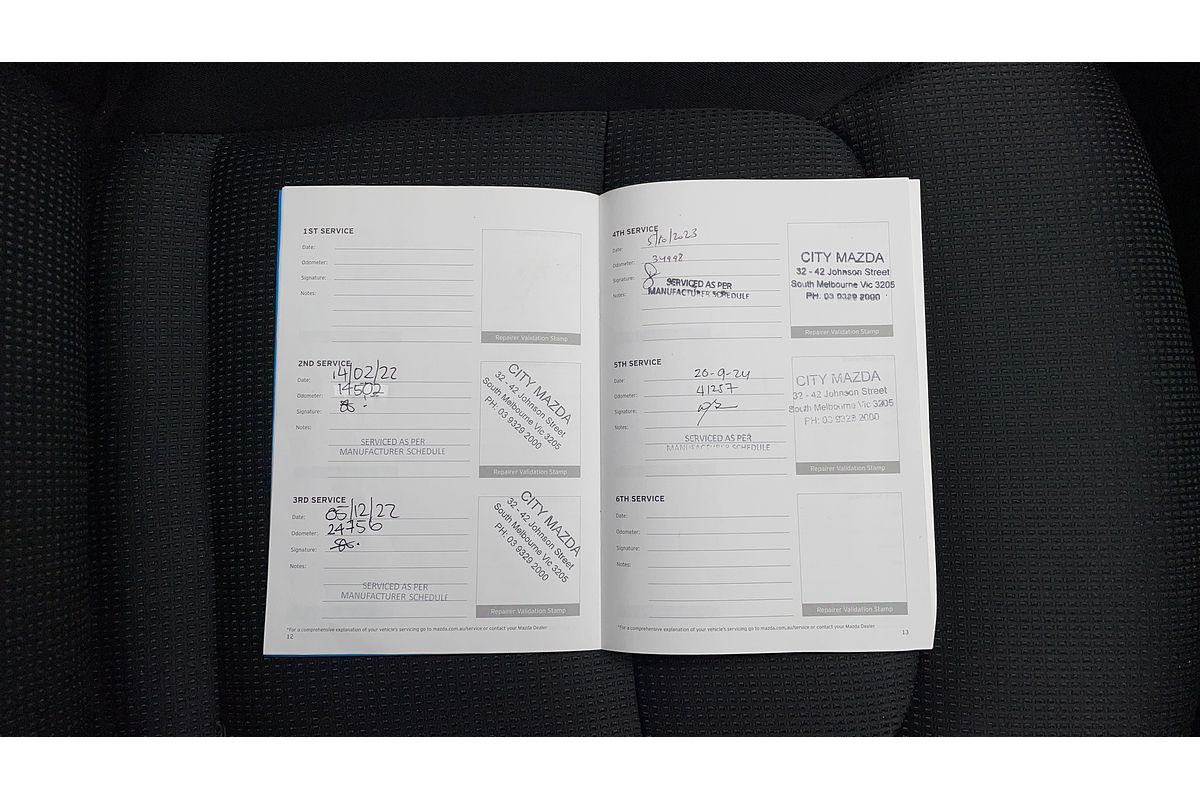 1ST SERVICE
Date:
Odometer:
Signature:
Notes:
Repairer Validation Stamp
2ND SERVICE
Date: 14/02/22
Odometer: 14502
Signature:
Notes:
SERVICED AS PER
MANUFACTURER SCHEDULE
CITY MAZDA
32 - 42 Johnson Street
South Melbourne Vic 3205
PH: 03 9329 2000
Repairer Validation Stamp
3RD SERVICE
Date: 05/12/22
Odometer: 24756
Signature:
Notes:
SERVICED AS PER
MANUFACTURER SCHEDULE
CITY MAZDA
32 - 42 Johnson Street
South Melbourne Vic 3205
PH: 03 9329 2000
Repairer Validation Stamp
*For a comprehensive explanation of your vehicle's servicing go to mazda.com.au/service or contact your Mazda Dealer
12
4TH SERVICE
Date: 5/10/2023
Odometer: 34998
Signature:
Notes:
SERVICED AS PER
MANUFACTURER SCHEDULE
CITY MAZDA
32 - 42 Johnson Street
South Melbourne Vic 3205
PH: 03 9329 2000
Repairer Validation Stamp
5TH SERVICE
Date: 20-9-24
Odometer: 41257
Signature:
Notes:
SERVICED AS PER
MANUFACTURER SCHEDULE
CITY MAZDA
32 - 42 Johnson Street
South Melbourne Vic 3205
PH: 03 9329 2000
Repairer Validation Stamp
6TH SERVICE
Date:
Odometer:
Signature:
Notes:
Repairer Validation Stamp
*For a comprehensive explanation of your vehicle's servicing go to mazda.com.au/service or contact your Mazda Dealer
13